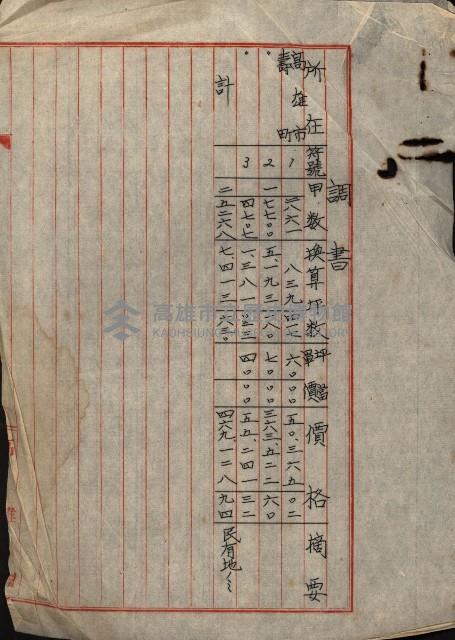 調書
所在 符號 甲数 換算坪数 坪當單價 價格 摘要
高雄市壽町 1 二八六一 八三九四一七 六〇〇〇 五〇、三六五〇二
〃 2 一七七〇〇 五、一九三一八〇 七〇〇〇 三六三、五二二六〇
〃 3 四七〇七 一、三八一〇三三 四〇〇〇 五五、二四一三二
計 二五二六八 七、四一三六三〇 四六九、一二八九四 民有地
高雄市立歷史博物館
KAOHSIUNG MUSEUM OF HISTORY